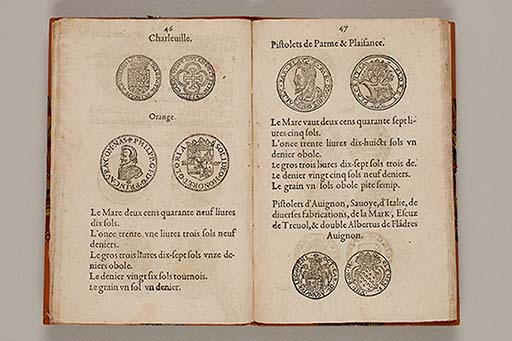 46
Charleuille.
Orange.
Le Marc deux cens quarante neuf liures
dix sols.
L'once trente vne liures trois sols neuf
deniers.
Le gros trois liures dix-sept sols vnze de-
niers obole.
Le denier vingt six sols tournois.
Le grain vn sol vn denier.
47
Pistolets de Parme & Plaisance.
Le Marc vaut deux cens quarante sept li-
ures cinq sols.
L'once trente liures dix-huicts sols vn
denier obole.
Le gros trois liures dix-sept sols trois de.
Le denier vingt cinq sols neuf deniers.
Le grain vn sols obole pite semip.
Pistolets d'Auignon, Sauoye, d'Italie, de
diuerses fabrications, de la Mark, Escuz
de Treuol, & double Albertus de Fládres
Auignon.